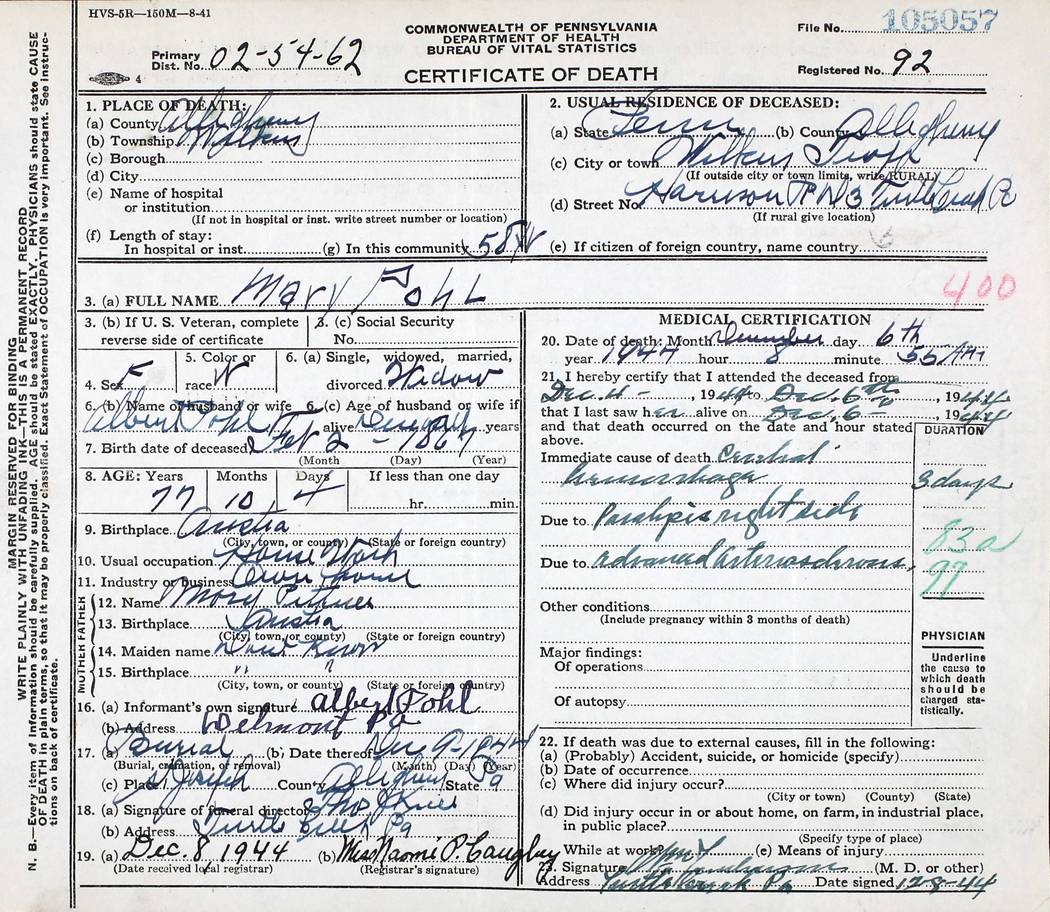 HVS-5R—150M—8-41
COMMONWEALTH OF PENNSYLVANIA
DEPARTMENT OF HEALTH
BUREAU OF VITAL STATISTICS
CERTIFICATE OF DEATH
File No. 105057
Primary Dist. No. 02-54-62
Registered No. 92
4
MARGIN RESERVED FOR BINDING
WRITE PLAINLY WITH UNFADING INK—THIS IS A PERMANENT RECORD
N. B.—Every item of information should be carefully supplied. AGE should be stated EXACTLY. PHYSICIANS should state CAUSE
OF DEATH in plain terms, so that it may be properly classified. Exact Statement of OCCUPATION is very important. See instruc-
tions on back of certificate.
1. PLACE OF DEATH:
(a) County Allegheny
(b) Township Wilkins
(c) Borough
(d) City
(e) Name of hospital
or institution
(If not in hospital or inst. write street number or location)
(f) Length of stay:
In hospital or inst. (g) In this community 58
2. USUAL RESIDENCE OF DECEASED:
(a) State Penn (b) County Allegheny
(c) City or town Wilkins Twp
(If outside city or town limits, write RURAL)
(d) Street No. Harrison 3 Turtle Creek Pa
(If rural give location)
(e) If citizen of foreign country, name country
3. (a) FULL NAME Mary Pohl
400
3. (b) If U. S. Veteran, complete
reverse side of certificate
3. (c) Social Security
No.
4. Sex F
5. Color or
race W
6. (a) Single, widowed, married,
divorced Widow
6. (b) Name of husband or wife
Albert Pohl
6. (c) Age of husband or wife if
alive years
7. Birth date of deceased Feb 2 - 1867
(Month) (Day) (Year)
8. AGE: Years Months Days If less than one day
77 10 4 hr. min.
9. Birthplace Austia
(City, town, or county) (State or foreign country)
10. Usual occupation House Work
11. Industry or business Own Home
FATHER
12. Name Mory
13. Birthplace Austia
(City, town, or county) (State or foreign country)
MOTHER
14. Maiden name Dont Know
15. Birthplace " "
(City, town, or county) (State or foreign country)
16. (a) Informant's own signature albert Pohl
(b) Address Delmont Pa
17. (a) Burial (b) Date thereof Dec 9-1944
(Burial, cremation, or removal) (Month) (Day) (Year)
(c) Place St Joseph County Allegheny State Pa
18. (a) Signature of funeral director Thos J
(b) Address Turtle Creek Pa
19. (a) Dec. 8, 1944 (b) Miss Naomi P. Caughey
(Date received local registrar) (Registrar's signature)
MEDICAL CERTIFICATION
20. Date of death: Month December day 6th
year 1944 hour 8 minute 55 AM
21. I hereby certify that I attended the deceased from
Dec. 4 - , 1944 to Dec. 6th , 1944
that I last saw her alive on Dec. 6 - , 1944
and that death occurred on the date and hour stated
above.
DURATION
Immediate cause of death Cerebral
hemorrhage
3 days
Due to Paralysis right side
83a
Due to advanced arteriosclerosis.
97
Other conditions
(Include pregnancy within 3 months of death)
Major findings:
Of operations
Of autopsy
PHYSICIAN
Underline
the cause to
which death
should be
charged sta-
tistically.
22. If death was due to external causes, fill in the following:
(a) (Probably) Accident, suicide, or homicide (specify)
(b) Date of occurrence
(c) Where did injury occur?
(City or town) (County) (State)
(d) Did injury occur in or about home, on farm, in industrial place,
in public place?
(Specify type of place)
While at work? (e) Means of injury
23. Signature (M. D. or other)
Address Turtle Creek Pa Date signed 12-8-44